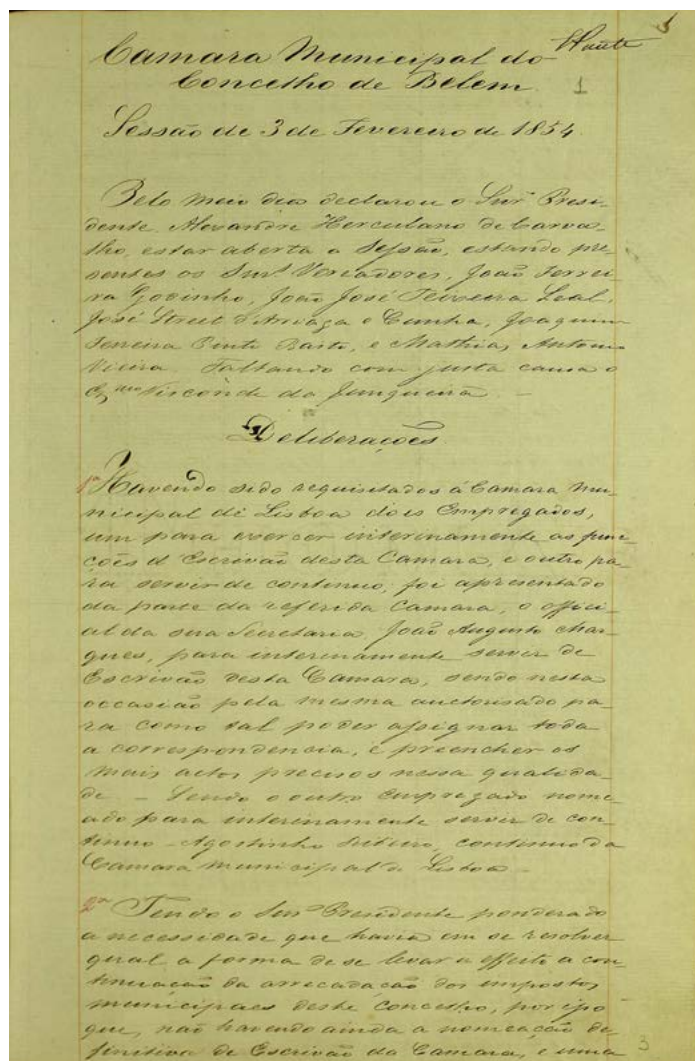 Camara Municipal do
Concelho de Belem
1
Sessão de 3 de Fevereiro de 1854.
Pelo meio dia declarou o Snr. Presi-
dente Alexandre Herculano de Carva-
lho, estar aberta a Sessão, estando pre-
sentes os Snrs. Vereadores, João Ferrei-
ra Godinho, João José Teixeira Leal,
José Street d'Arriaga e Cunha, Joaquim
Ferreira Pinto Basto, e Mathias Antonio
Vieira. Faltando com justa causa o
Exmo Visconde da Junqueira. —
Deliberações
1ª Havendo sido requisitados á Camara Mu-
nicipal de Lisboa dois Empregados,
um para exercer interinamente as func-
ções d'Escrivão desta Camara, e outro pa-
ra servir de continuo, foi apresentado
da parte da referida Camara, o offici-
al da sua Secretaria João Augusto Mar-
ques, para interinamente servir de
Escrivão desta Camara, sendo nesta
occasião pela mesma auctorisado pa-
ra como tal poder assignar toda
a correspondencia, e preencher os
mais actos precisos nessa qualida-
de — Sendo o outro empregado nome-
ado para interinamente servir de con-
tinuo — Agostinho continuo da
Camara Municipal de Lisboa
2ª Tendo o Snr. Presidente ponderado
a necessidade que havia em se resolver
qual a forma de se levar a effeito a con-
tinuação da arrecadação dos impostos
municipaes deste Concelho, por isso
que, não havendo ainda a nomeação de-
finitiva de Escrivão da Camara, e uma
3